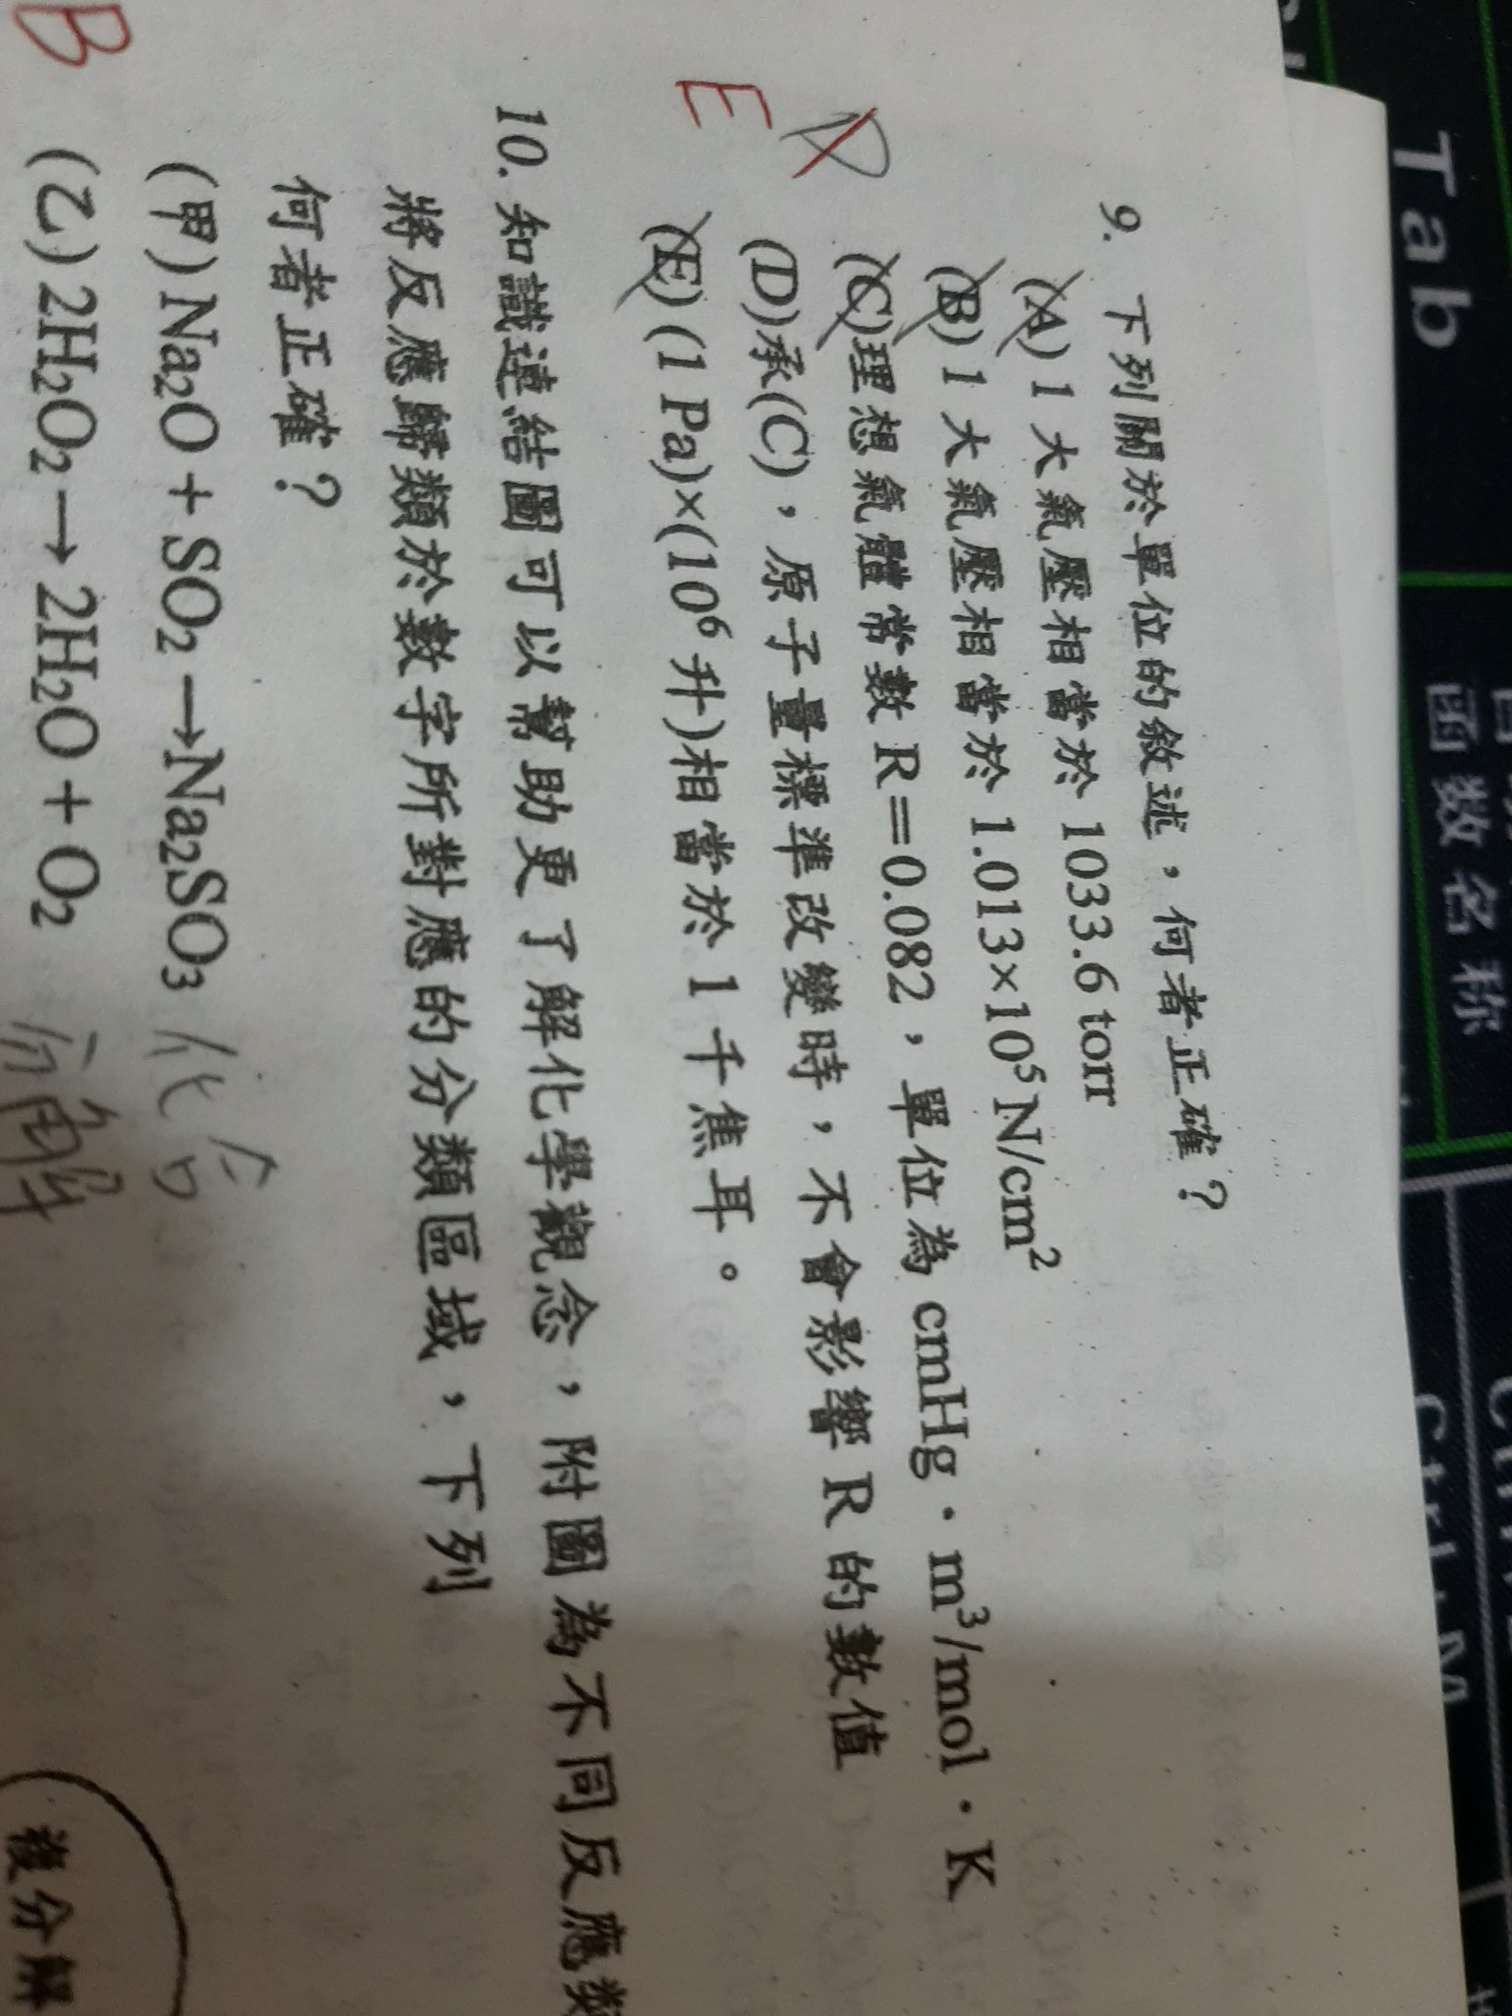 Tab
函数名称
Ctrl+M
9. 下列關於單位的敘述，何者正確？
(A) 1 大氣壓相當於 1033.6 torr
(B) 1 大氣壓相當於 1.013×10⁵ N/cm²
(C)理想氣體常數 R＝0.082，單位為 cmHg·m³/mol·K
D (D)承(C)，原子量標準改變時，不會影響 R 的數值
E (E) (1 Pa)×(10⁶ 升)相當於 1 千焦耳。
10. 知識連結圖可以幫助更了解化學觀念，附圖為不同反應類
將反應歸類於數字所對應的分類區域，下列
何者正確？
(甲) Na₂O + SO₂ → Na₂SO₃ 化合
B (乙) 2H₂O₂ → 2H₂O + O₂ 分解
複分解